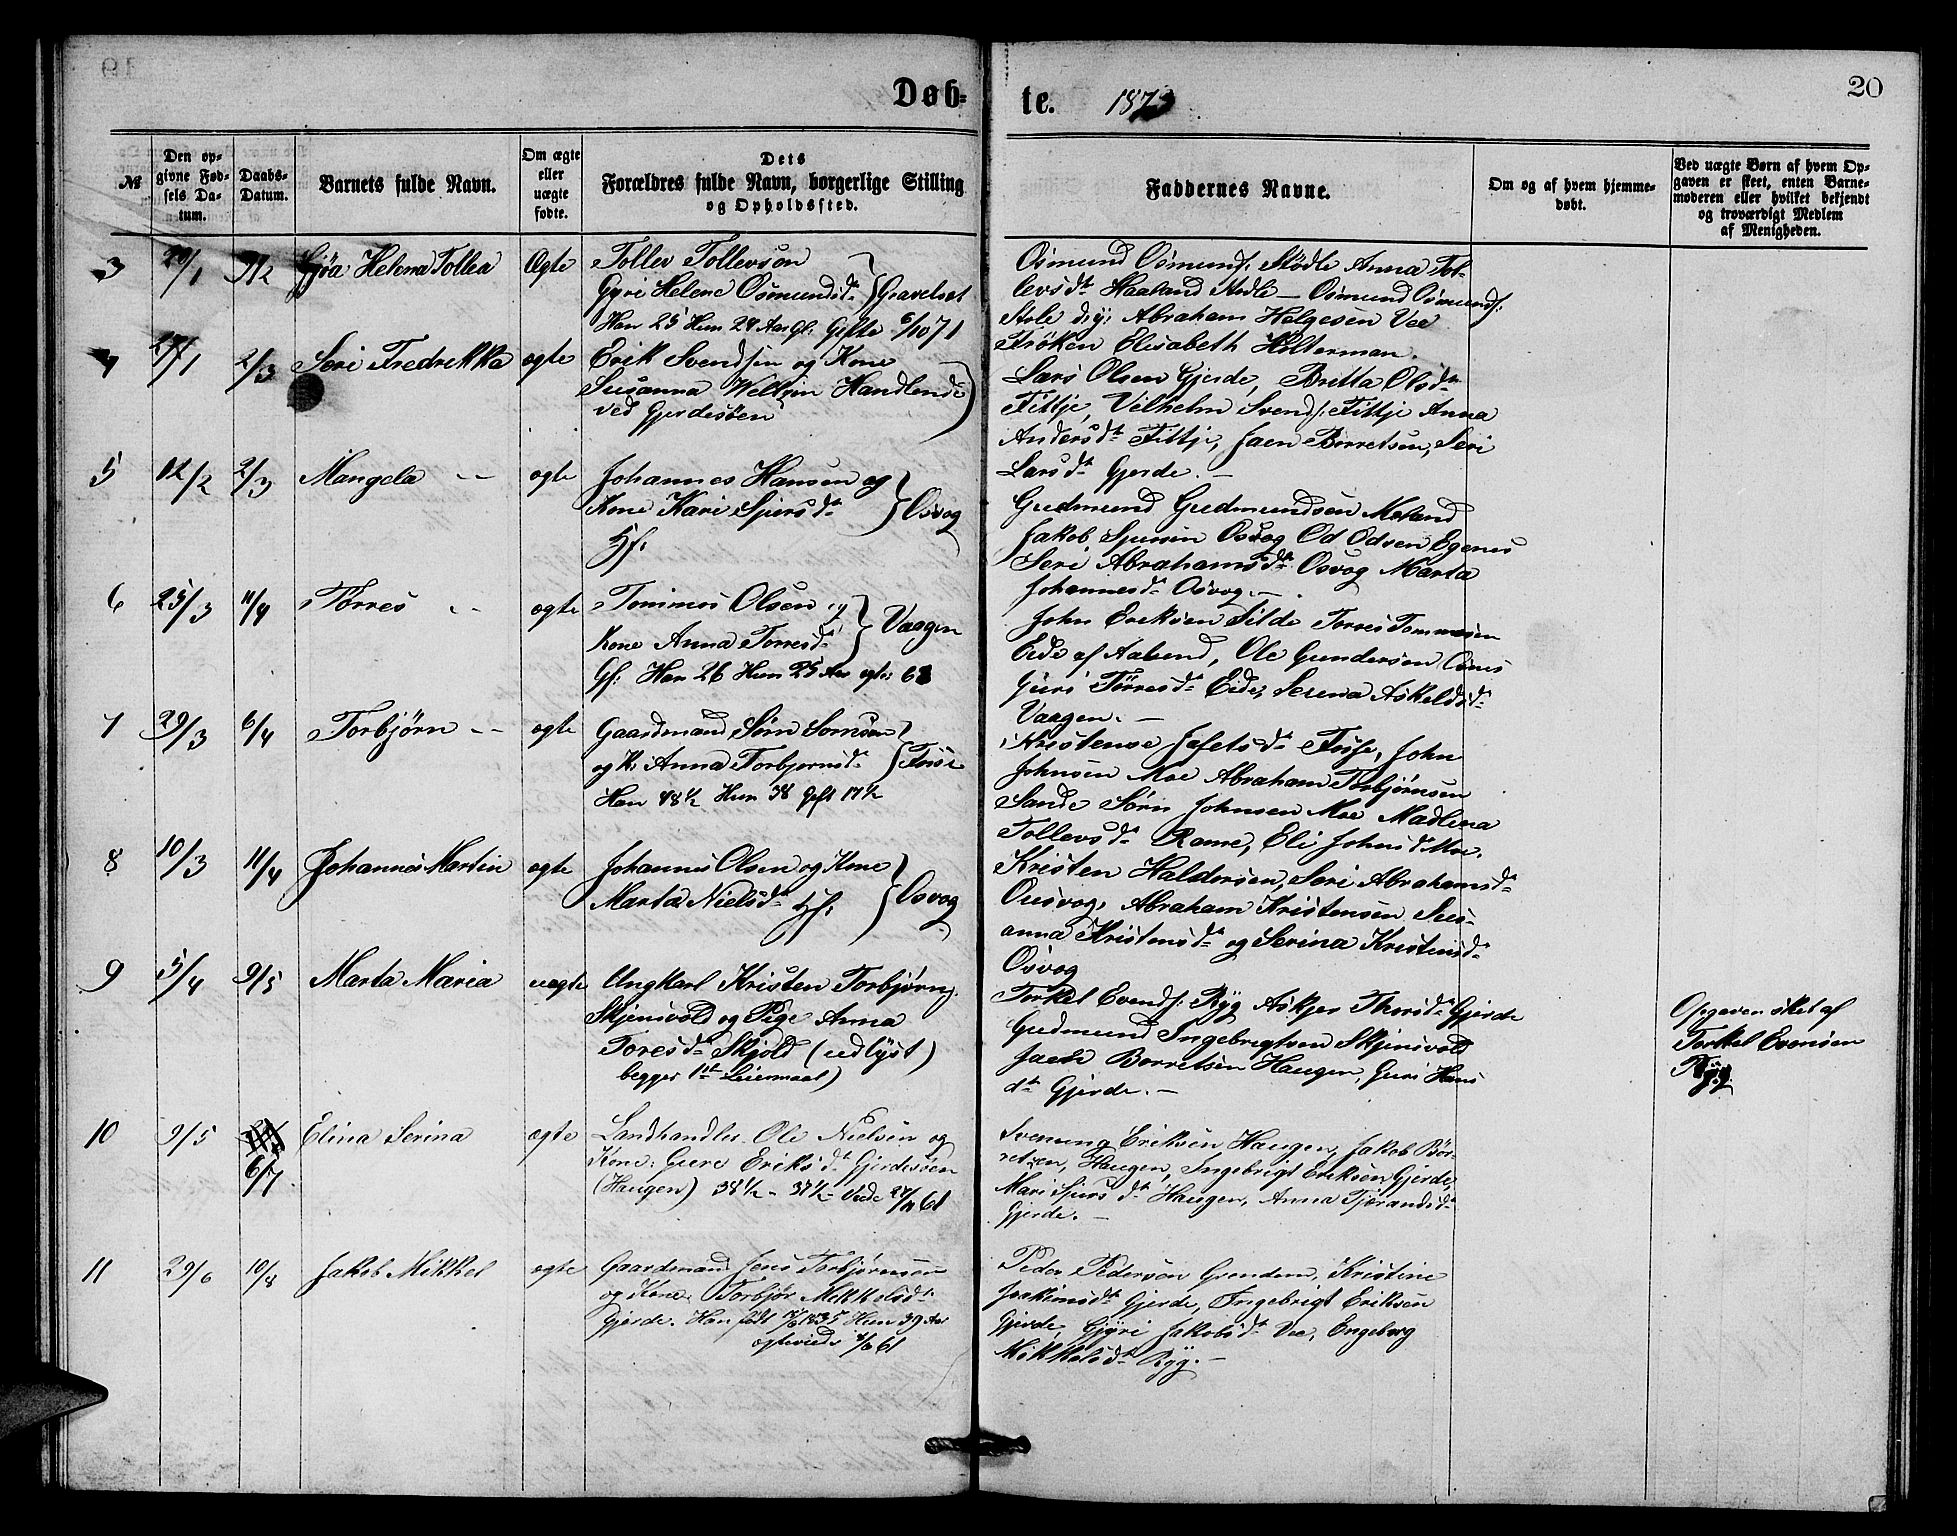 Døb-
te. 1873
20
№
Den op-
givne Fød-
sels Da-
tum.
Daabs-
Datum.
Barnets fulde Navn.
Om ægte
eller
uægte
fødte.
Dets
Forældres fulde Navn, borgerlige Stilling
og Opholdssted.
Faddernes Navne.
Om og af hvem hjemme-
døbt.
Ved uægte Børn af hvem Op-
gaven er skeet, enten Barne-
moderen eller hvilket bekjendt
og troværdigt Medlem
af Menigheden.
3 20/1 Gjøa Helena Tollea Ægte Tollev Tollevson
Gyri Helene Osmundsdt
Han 25 Hun 24 Aar Gifte 6/10 71
Osmund Osmunds. Stødle Anna Tol-
levsdt Haaland Stødle – Osmund Osmunds.
Abraham Helgesen Vee
Frøken Elisabeth Hilterman.
2/3 Seri Fredrikka ægte Erik Svendsen og Kone
Susanna Handlende
ved Gjerdesøen
Lars Olsen Gjerde, Britta Olsdt
Fittje, Vilhelm Svends. Fittje Anna
Andersdt Fittje, Jaen Borretsen, Seri
Larsdt Gjerde. –
5 12/2 2/3 Mangela – – ægte Johannes Hansen og
Kone Kari Sjursdt Osvog
Hf.
Gudmund Gudmundsen Moland
Jakob Sjursen Osvog Od Odsen Egenes
Seri Abrahamsdt Osvog Marta
Johannesdt Osvog. –
6 25/3 11/4 Tørres – ægte Tommes Olsen og
Kone Anna Torresdt Vaagen
Gf. Han 26 Hun 25 Aar
John Eriksen Silde Torres Tommesen
Eide af Aalund, Ole Gundersen Osnes
Guri Tørresdt Eide, Serena Askeldsdt
Vaagen. –
7 29/3 6/4 Torbjørn – – ægte Gaardmand Sørn Sornsen
og K. Anna Torbjornsdt
Han 48½ Hun 38 Gift 17½
Kristense Jafetsdt John
Johnsen Moe Abraham Torbjørnsen
Sande Sørn Johnsen Moe Madlena
Tollevsdt Rame, Eli Johnsd Moe.
8 10/3 11/4 Johannes Martin ægte Johannes Olsen og Kone
Marta Nielsdt Hf. Osvog
Kristen Haldorsen, Seri Abrahamsdt
Ousvog, Abraham Kristensen Sus-
anna Kristensdt og Serina Kristensdt
Osvog
9 5/4 9/5 Marta Maria uægte Ungkarl Kristen Torbjørns.
Skjensvold og Pige Anna
Toresdt Skjold (udlyst)
begges 1ste Leiermaal)
Torkel Evends. Ryg Askjer Thorsdt Gjerde
Gudmund Ingebrigtsen Skjensvold
Jaen Borretsen Haugen, Guri Hans
dt Gjerde. –
Opgaven sket af
Torkel Evensen
Ryg
10 9/5 6/7 Elina Serina ægte Landhandler Ole Nielsen og
Kone: Gure Eriksdt Gjerdesøen
(Haugen) 38½ – 37½ – Viede 61
Svenung Eriksen Haugen, Jakob Bør-
retsen, Haugen, Ingebrigt Eriksen Gjerde,
Mari Sjursdt Haugen, Anna Tjerandsdt
Gjerde. –
11 29/6 10/8 Jakob Mikkel ægte Gaardmand Jens Torbjørnsen
og Kone Torbjør Mikkelsdt
Gjerde. Han født 1835 Hun 39 Aar
ægteviede 61
Peder Pedersen Grendem, Kristine
Joakimsdt Gjerde, Ingebrigt Eriksen
Gjerde, Gjyri Jakobsdt Vee, Engeborg
Mikkelsdt Ryg. –